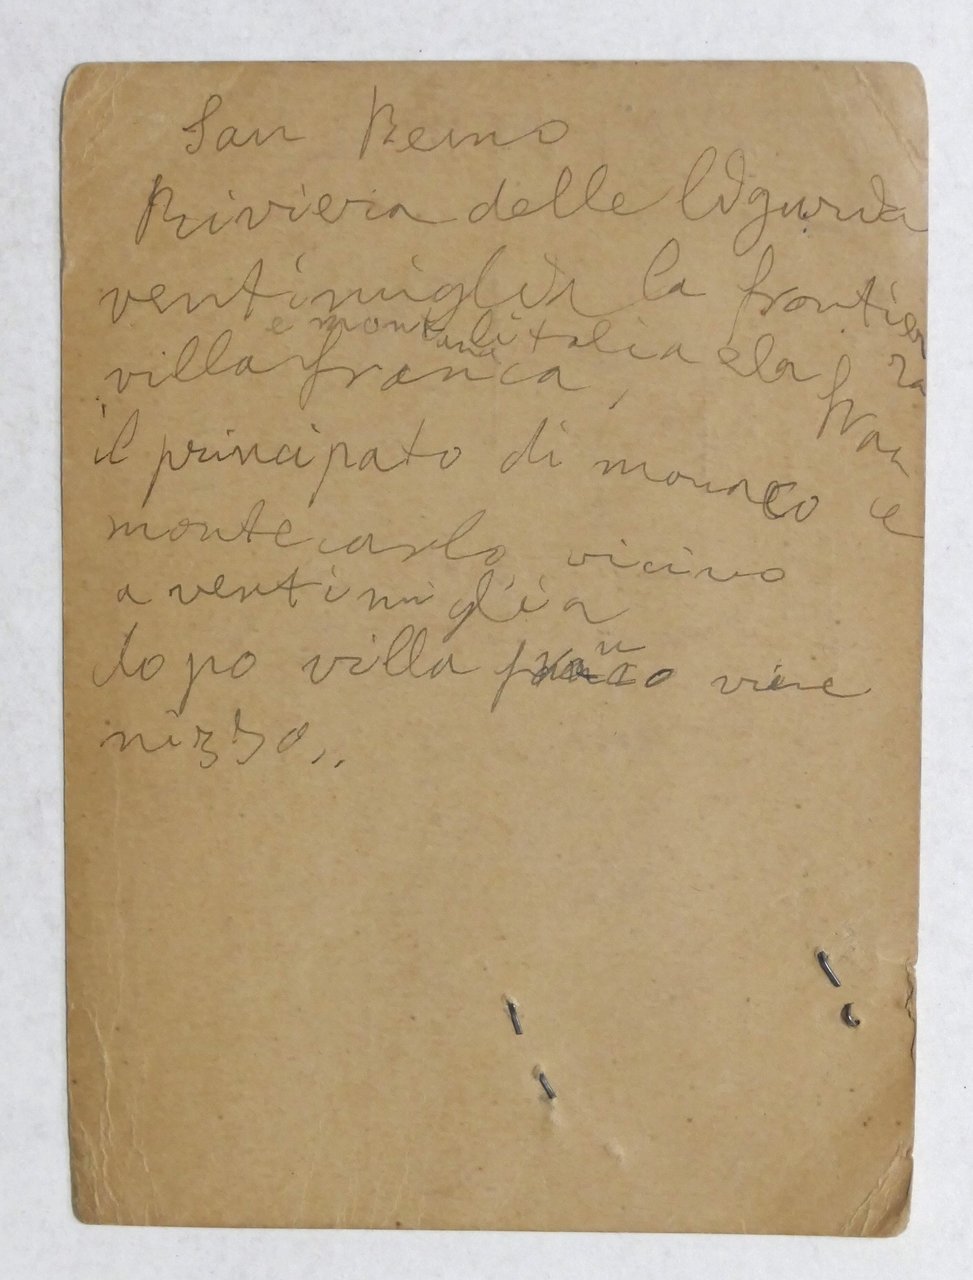 San Remo
Riviera delle Liguria
ventimiglia la frontiera
e l'italia e la francie
villa franca,
il principato di monaco
monte carlo vicino
a ventimiglia
dopo villa franco viene
nizza,,